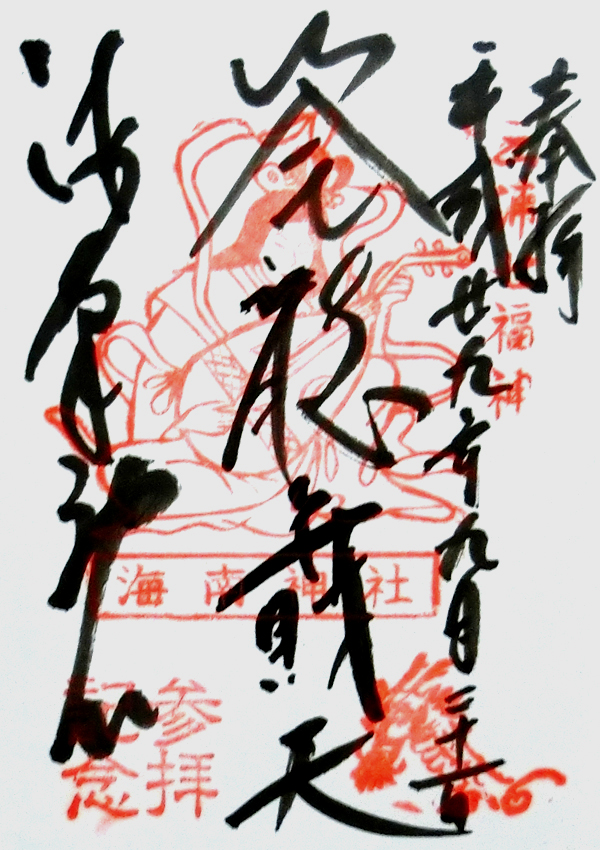 奉拝
平成廿九年九月二十六日
三浦七福神
筌龍弁財天
海南神社
海南神社
参拝
記念